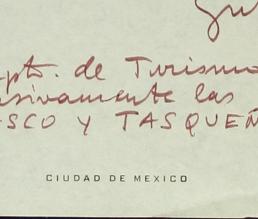 pto. de Turismo
usivamente las
ASCO Y TASQUEÑ
CIUDAD DE MEXICO